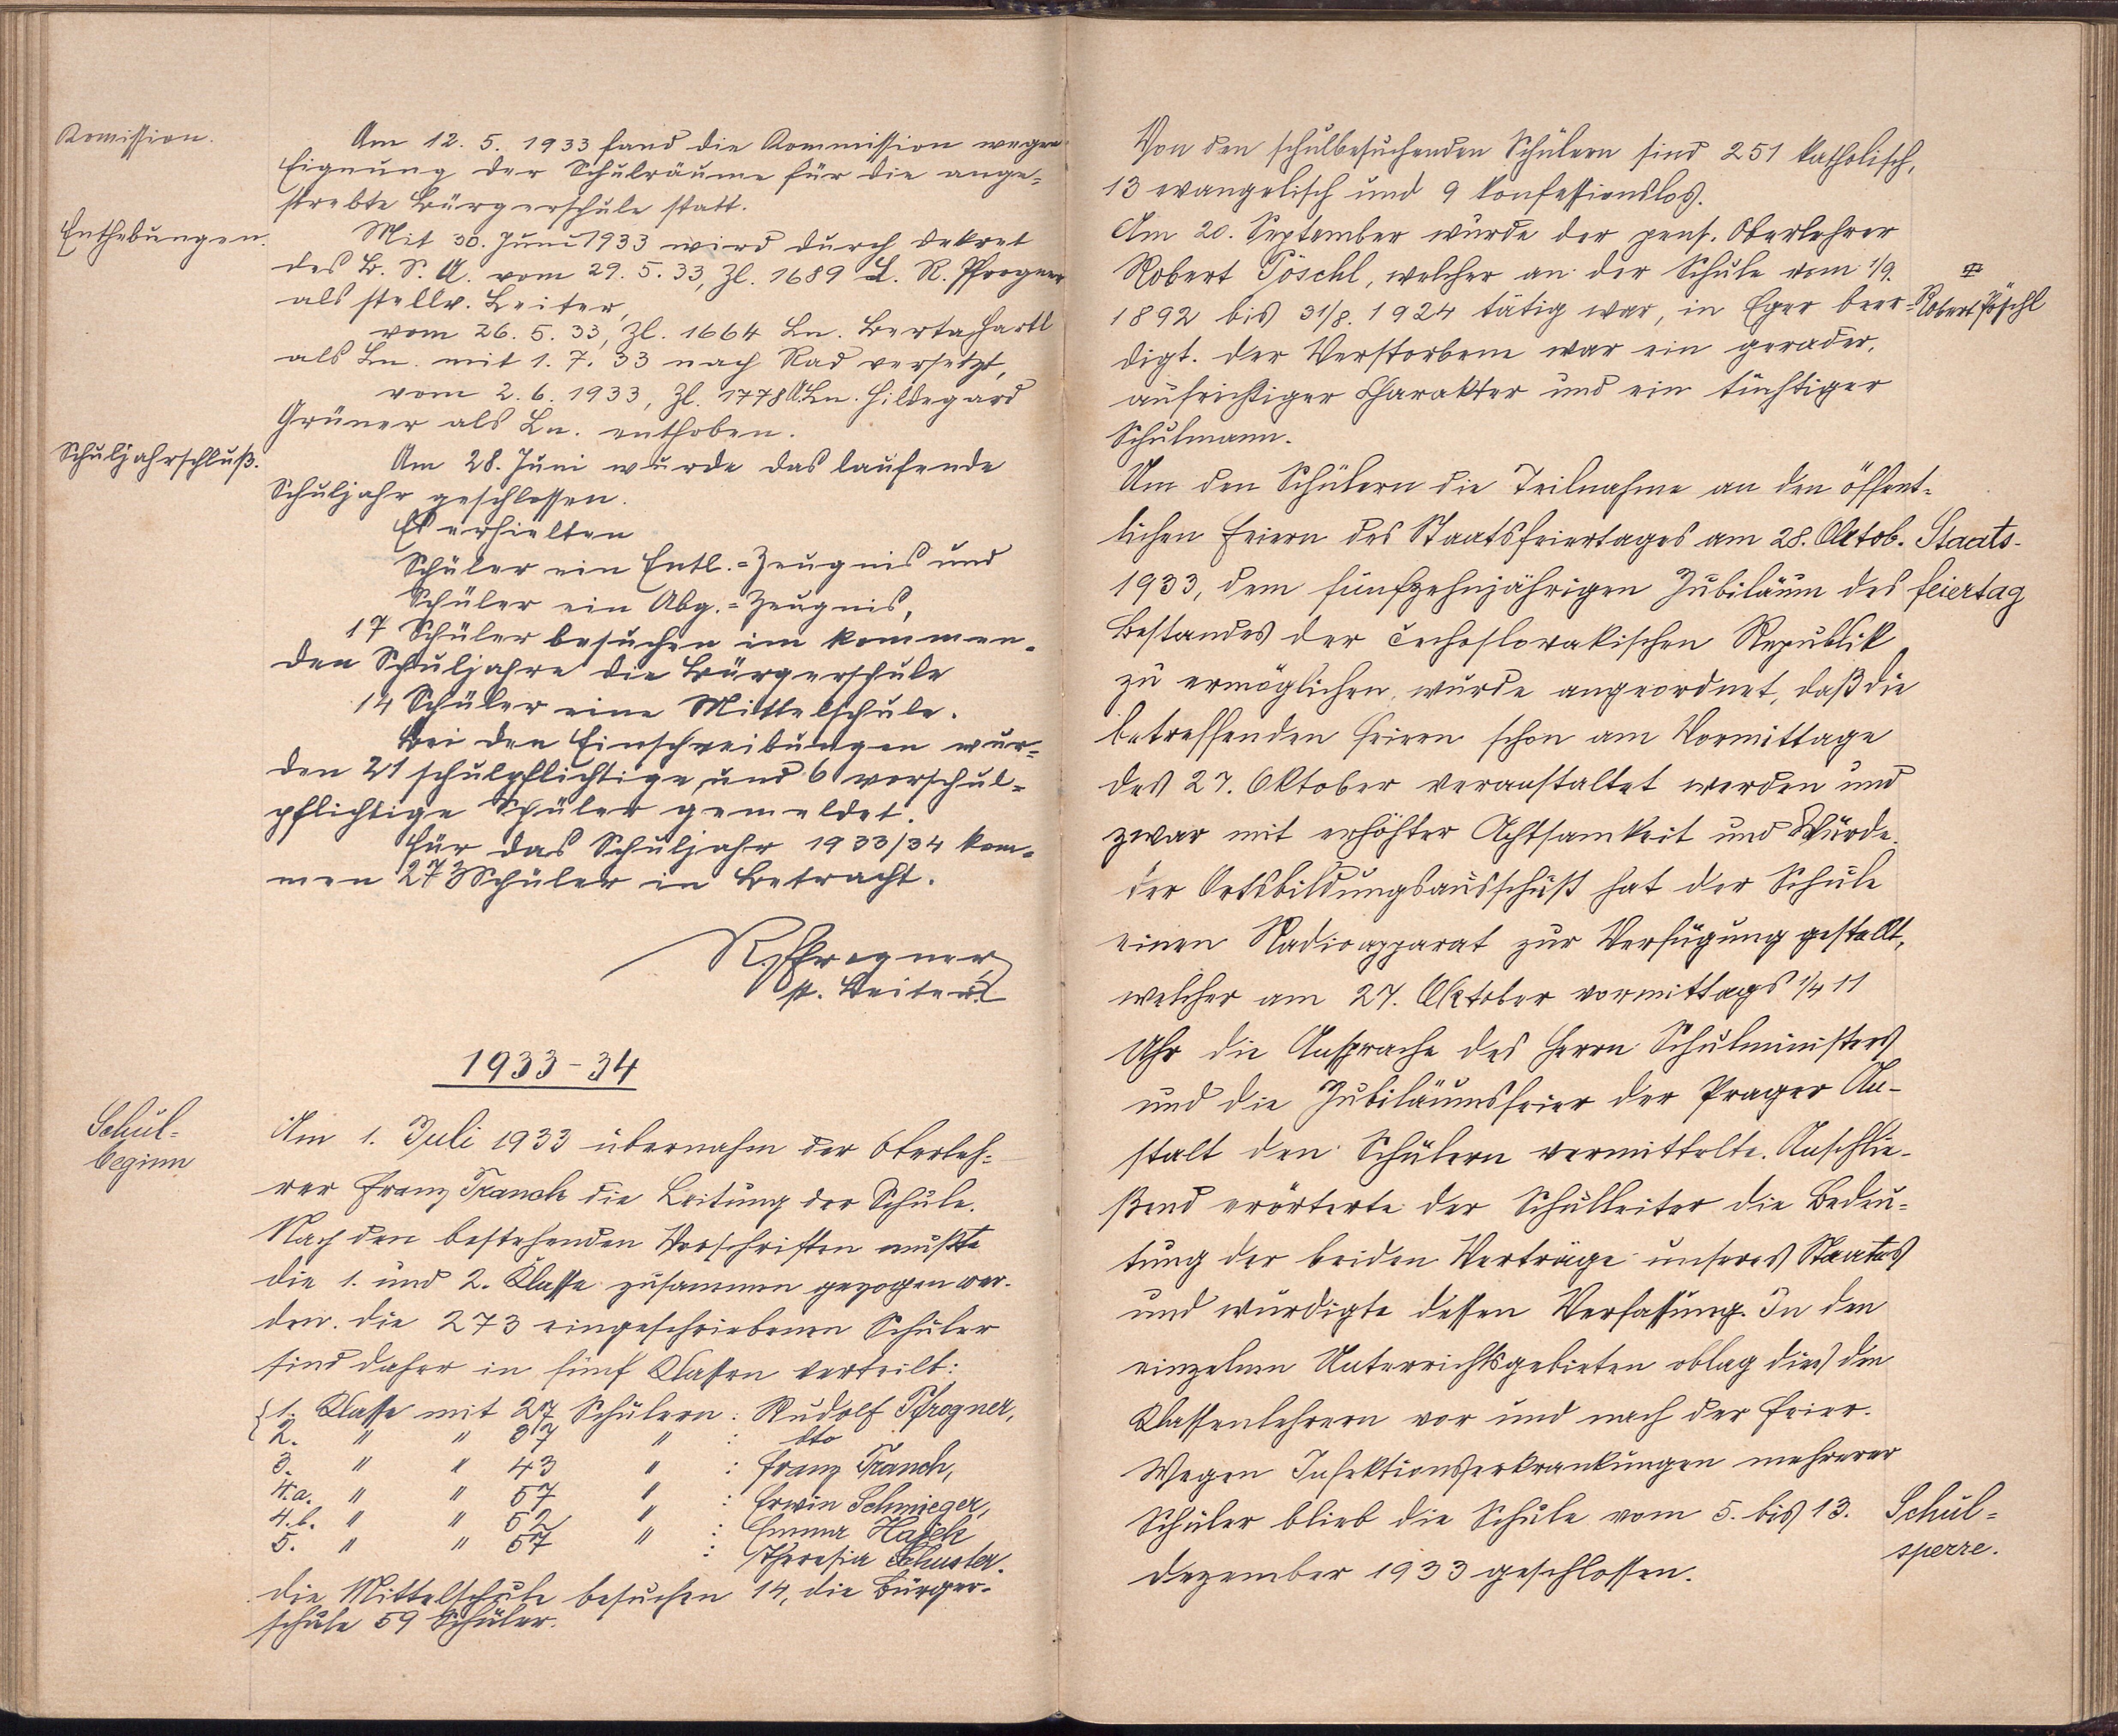 Komission.
Am 12. 5. 1933 fand die Kommission wegen
Eignung der Schulräume für die ange-
strebte Bürgerschule statt.
Enthebungen.
Mit 30. Juni 1933 wird durch Dekret
des B. S. A. vom 29. 5. 33, Zl. 1689 L. R. Pfrogner
als stellv. Leiter,
vom 26. 5. 33, Zl. 1664 Ln. Berta Hartl
als Ln. mit 1. 7. 33 nach Rad versetzt,
vom 2. 6. 1933, Zl. 1778 Ln. Hildegard
Grüner als Ln. enthoben.
Schuljahrschluß.
Am 28. Juni wurde das laufende
Schuljahr geschlossen.
Es erhielten
Schüler ein Entl.-Zeugnis und
Schüler ein Abg.-Zeugnis,
17 Schüler besuchen im kommen-
den Schuljahre die Bürgerschule
14 Schüler eine Mittelschule.
Bei den Einschreibungen wur-
den 21 schulpflichtige und 6 vorschul-
pflichtige Schüler gemeldet.
Für das Schuljahr 1933/34 kom-
men 273 Schüler in Betracht.
R. Pfrogner
st. Leiter.
1933-34
Schul-
beginn
Am 1. Juli 1933 übernahm der Oberleh-
rer Franz Tranch die Leitung der Schule.
Nach den bestehenden Vorschriften mußte
die 1. und 2. Klasse zusammen gezogen wer-
den. Die 273 eingeschriebenen Schüler
sind daher in fünf Klassen verteilt:
{1. Klasse mit 27 Schülern: Rudolf Pfrogner,
2. " " 37 " : dto
3. " " 43 " : Franz Tranch,
4.a. " " 57 " : Erwin Schmieger,
4.b. " " 52 " : Emma Hajek
5. " " 57 " : Theresia Schuster.
Die Mittelschule besuchen 14, die Bürger-
schule 59 Schüler.
Von den schulbesuchenden Schülern sind 251 katholisch,
13 evangelisch und 9 konfessionslos.
Am 20. September wurde der pens. Oberlehrer
Robert Pöschl, welcher an der Schule vom 1/9.
1892 bis 31/8. 1924 tätig war, in Eger beer-
Robert Pöschl
digt. Der Verstorbene war ein gerader,
aufrichtiger Charakter und ein tüchtiger
Schulmann.
Um den Schülern die Teilnahme an den öffent-
lichen Feiern des Staatsfeiertages am 28. Oktob.
Staats-
1933, dem fünfzehnjährigen Jubiläum des
feiertag
Bestandes der čechoslovakischen Republik
zu ermöglichen, wurde angeordnet, daß die
betreffenden Feiern schon am Vormittage
des 27. Oktober veranstaltet werden und
zwar mit erhöhter Achtsamkeit und Würde.
Der Ortsbildungsausschuß hat der Schule
einen Radioapparat zur Verfügung gestellt,
welcher am 27. Oktober vormittags 1/4 11
Uhr die Ansprache des Herrn Schulministers
und die Jubiläumsfeier der Prager An-
stalt den Schülern vermittelte. Anschlie-
ßend erörterte der Schulleiter die Bedeu-
tung der beiden Verträge unseres Staates
und würdigte dessen Verfassung. In den
einzelnen Unterrichtsgebieten oblag dies den
Klassenlehrern vor und nach der Feier.
Wegen Infektionserkrankungen mehrerer
Schüler blieb die Schule vom 5. bis 13.
Schul-
sperre.
Dezember 1933 geschlossen.